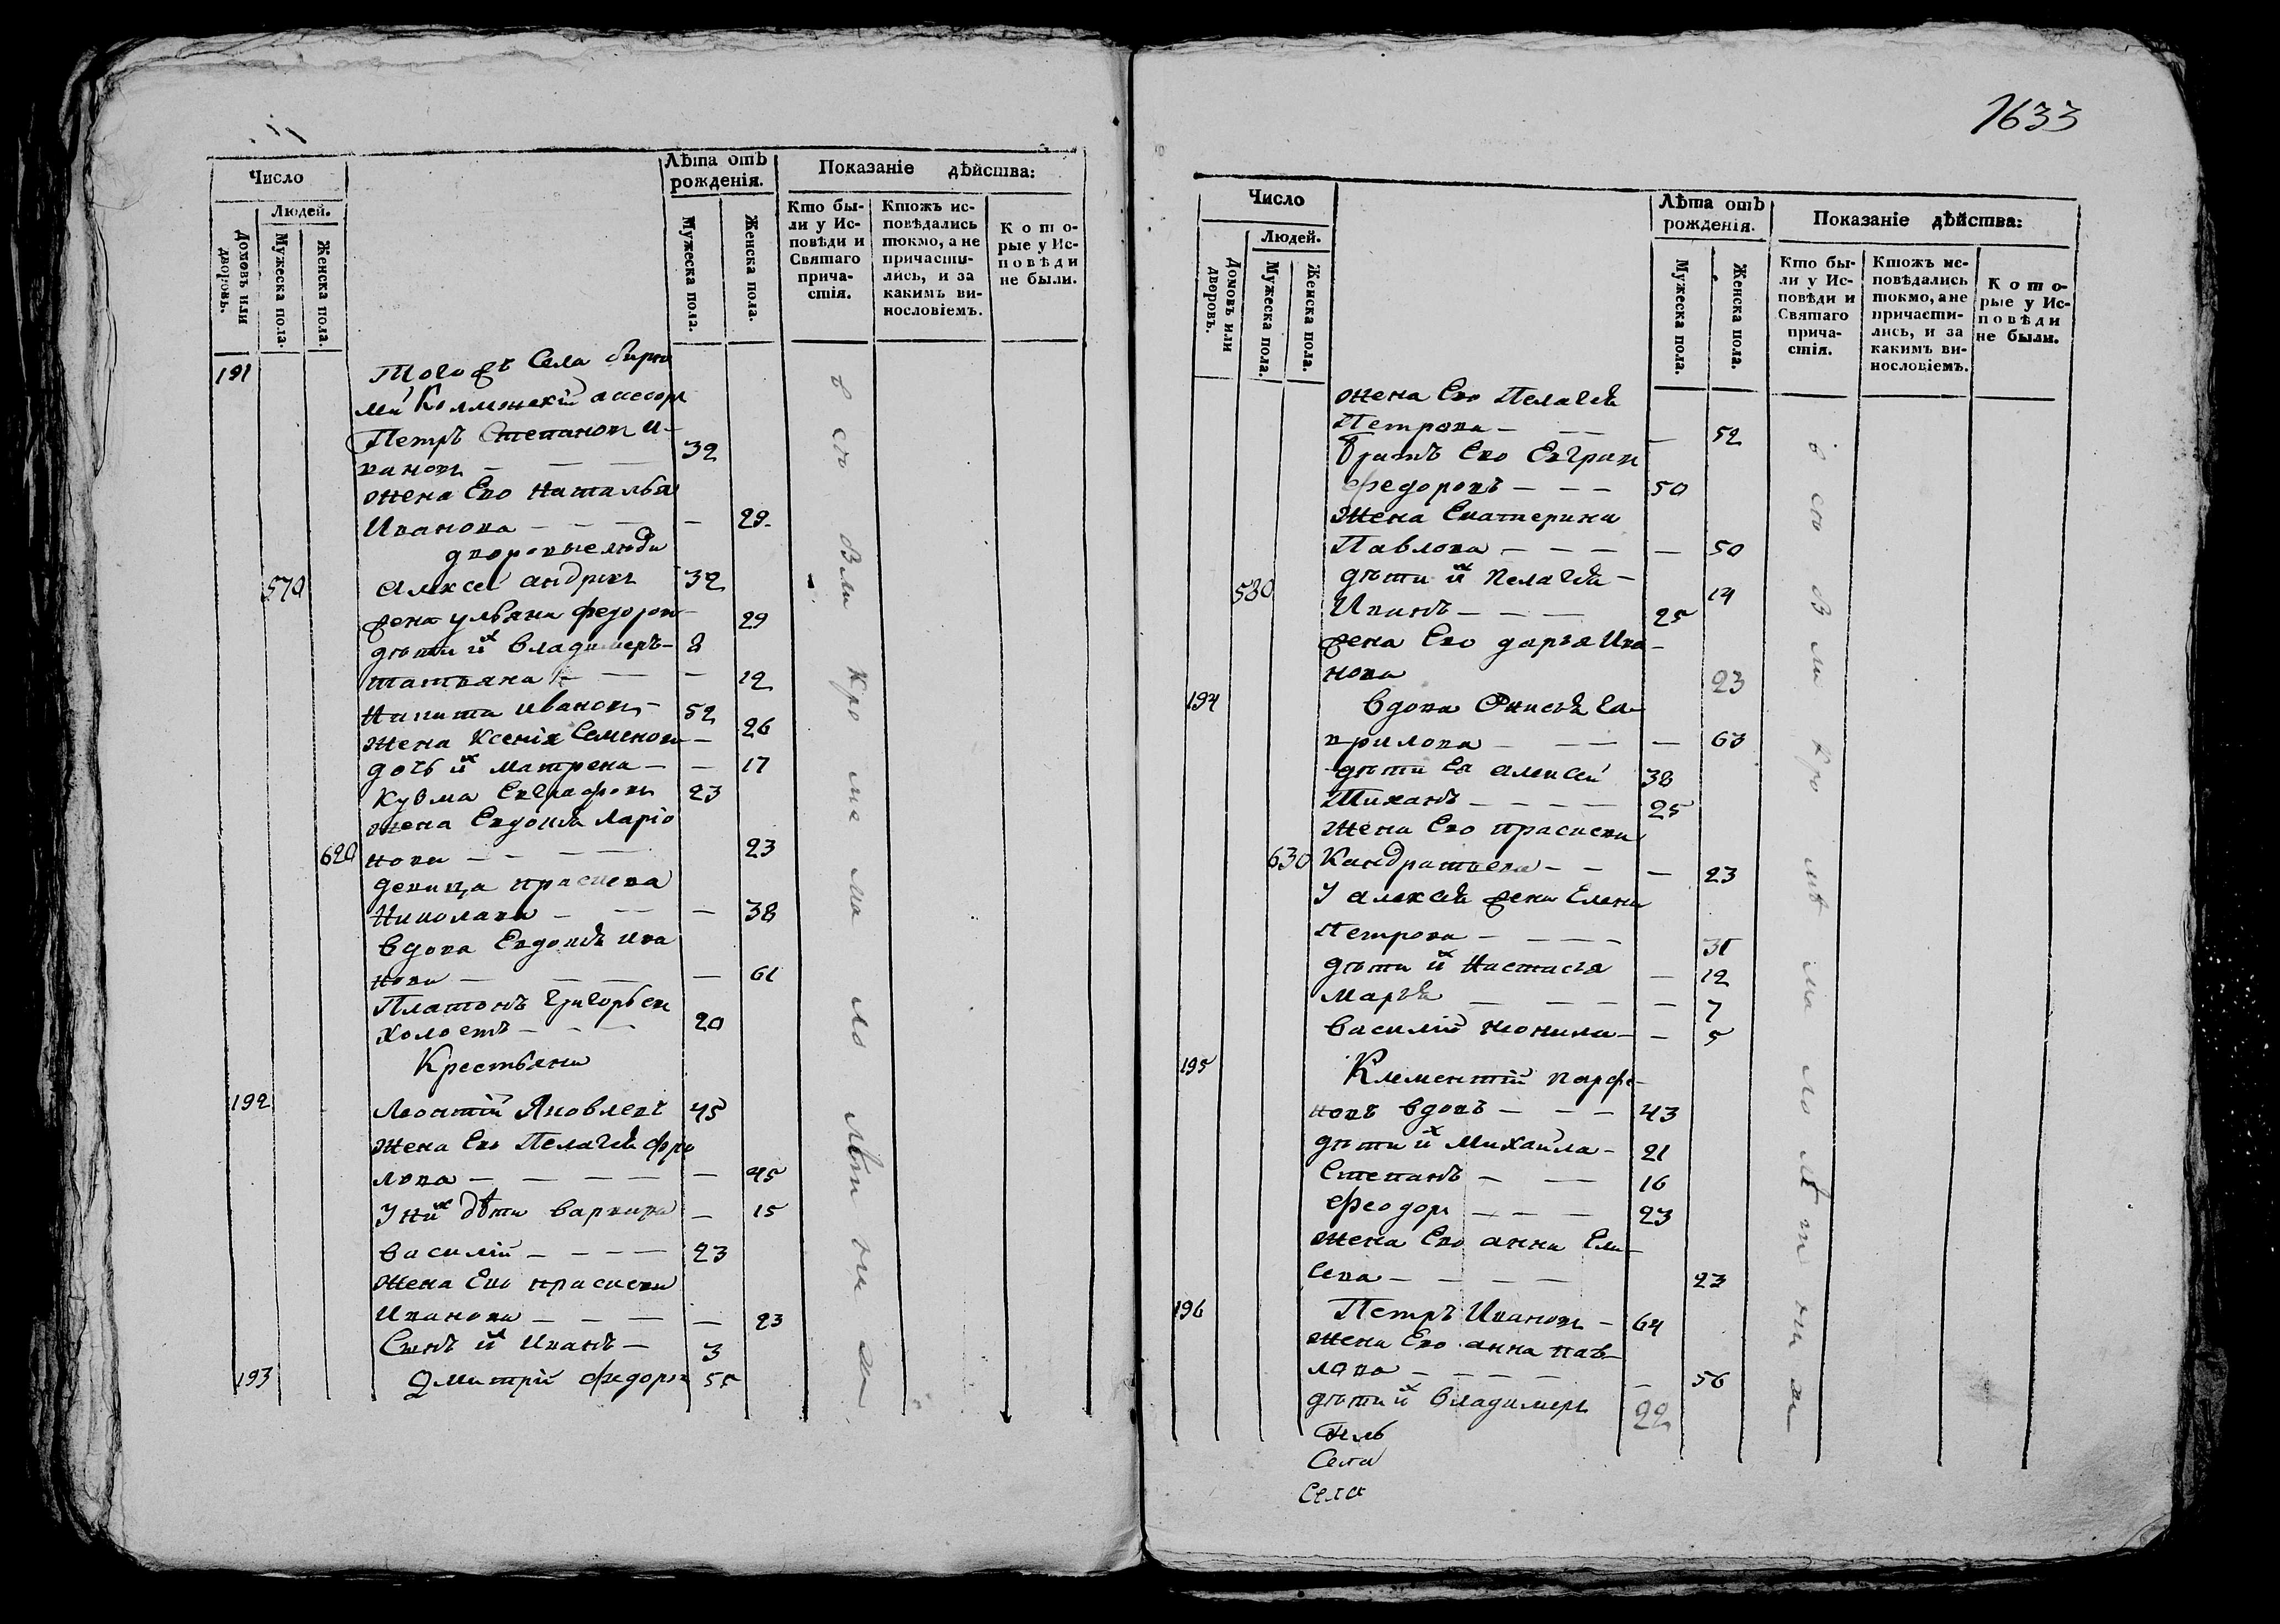 Число
Людей.
Домовъ или дворовъ.
Мужеска пола.
Женска пола.
Лѣта отъ рожденія.
Мужеска пола.
Женска пола.
Показаніе дѣйства:
Кто бы-
ли у Ис-
повѣди и
Святаго
прича-
стія.
Ктожъ ис-
повѣдались
токмо, а не
причасти-
лись, и за
какимъ ви-
нословіемъ.
Кото-
рые у Ис-
повѣди
не были.
191 Тогожъ Села
ассесоръ
Петръ Степановъ И-
вановъ — — — 32
жена Его Наталья
Иванова — — — 29
дворовые люди
570 Алексей Андреевъ 32
жена Ульяна Федоров 29
дѣти их Владимеръ — 8
татьяна — — — 12
Никита Ивановъ — 52
жена Ксенія Семенова — 26
дочь их Матрена — — 17
Кузма Евграфовъ 23
жена Евдокія Ларіо
620 нова — — — 23
девица праскева
Николаева — — — 38
вдова Евдокія Ива
нова — — — — 61
Платонъ Григорьевъ
холостъ — — — 20
Крестьяни
192 Леонтій Яковлевъ 45
жена Его Пелагея Фро
лова — — — — 45
У них дѣти варвара — 15
василій — — — — 23
жена Его праскева
Иванова — — — — 23
Сынъ их Иванъ — 3
193 Дмитрій Федоровъ 55
в сто Вли кро ме ма ло лѣт ни хъ
1633
Число
Людей.
Домовъ или дворовъ.
Мужеска пола.
Женска пола.
Лѣта отъ рожденія.
Мужеска пола.
Женска пола.
Показаніе дѣйства:
Кто бы-
ли у Ис-
повѣди и
Святаго
прича-
стія.
Ктожъ ис-
повѣдались
токмо, а не
причасти-
лись, и за
какимъ ви-
нословіемъ.
Кото-
рые у Ис-
повѣди
не были.
жена Его Пелагея
Петрова — — — — 52
братъ Его Евграфъ
Федоровъ — — — 50
жена Екатерина
Павлова — — — — 50
дѣти их Пелагея — 14
580 Иванъ — — — 25
жена Его дарья Ива-
нова 23
194 вдова Га-
врилова — — — — 63
дѣти Ея Алексей 38
— — — — 25
жена Его праскева
630 Кандратьева — — — 23
У Алексея жена Елена
Петрова — — — — 31
дѣти их Настасья — 12
Марья — — — — 7
василій — — 5
195 Клементій Парфе-
новъ вдовъ — — — 43
дѣти их Михаила — 21
Степанъ — — 16
Феодоръ — — — 23
жена Его анна Ели-
сева — — — — 23
196 Петръ Ивановъ — 64
жена Его анна пав-
лова — — — — — 56
дѣти их владимеръ 22
Села
Села
в сто Вли кро мѣ ма ло лѣт ни хъ